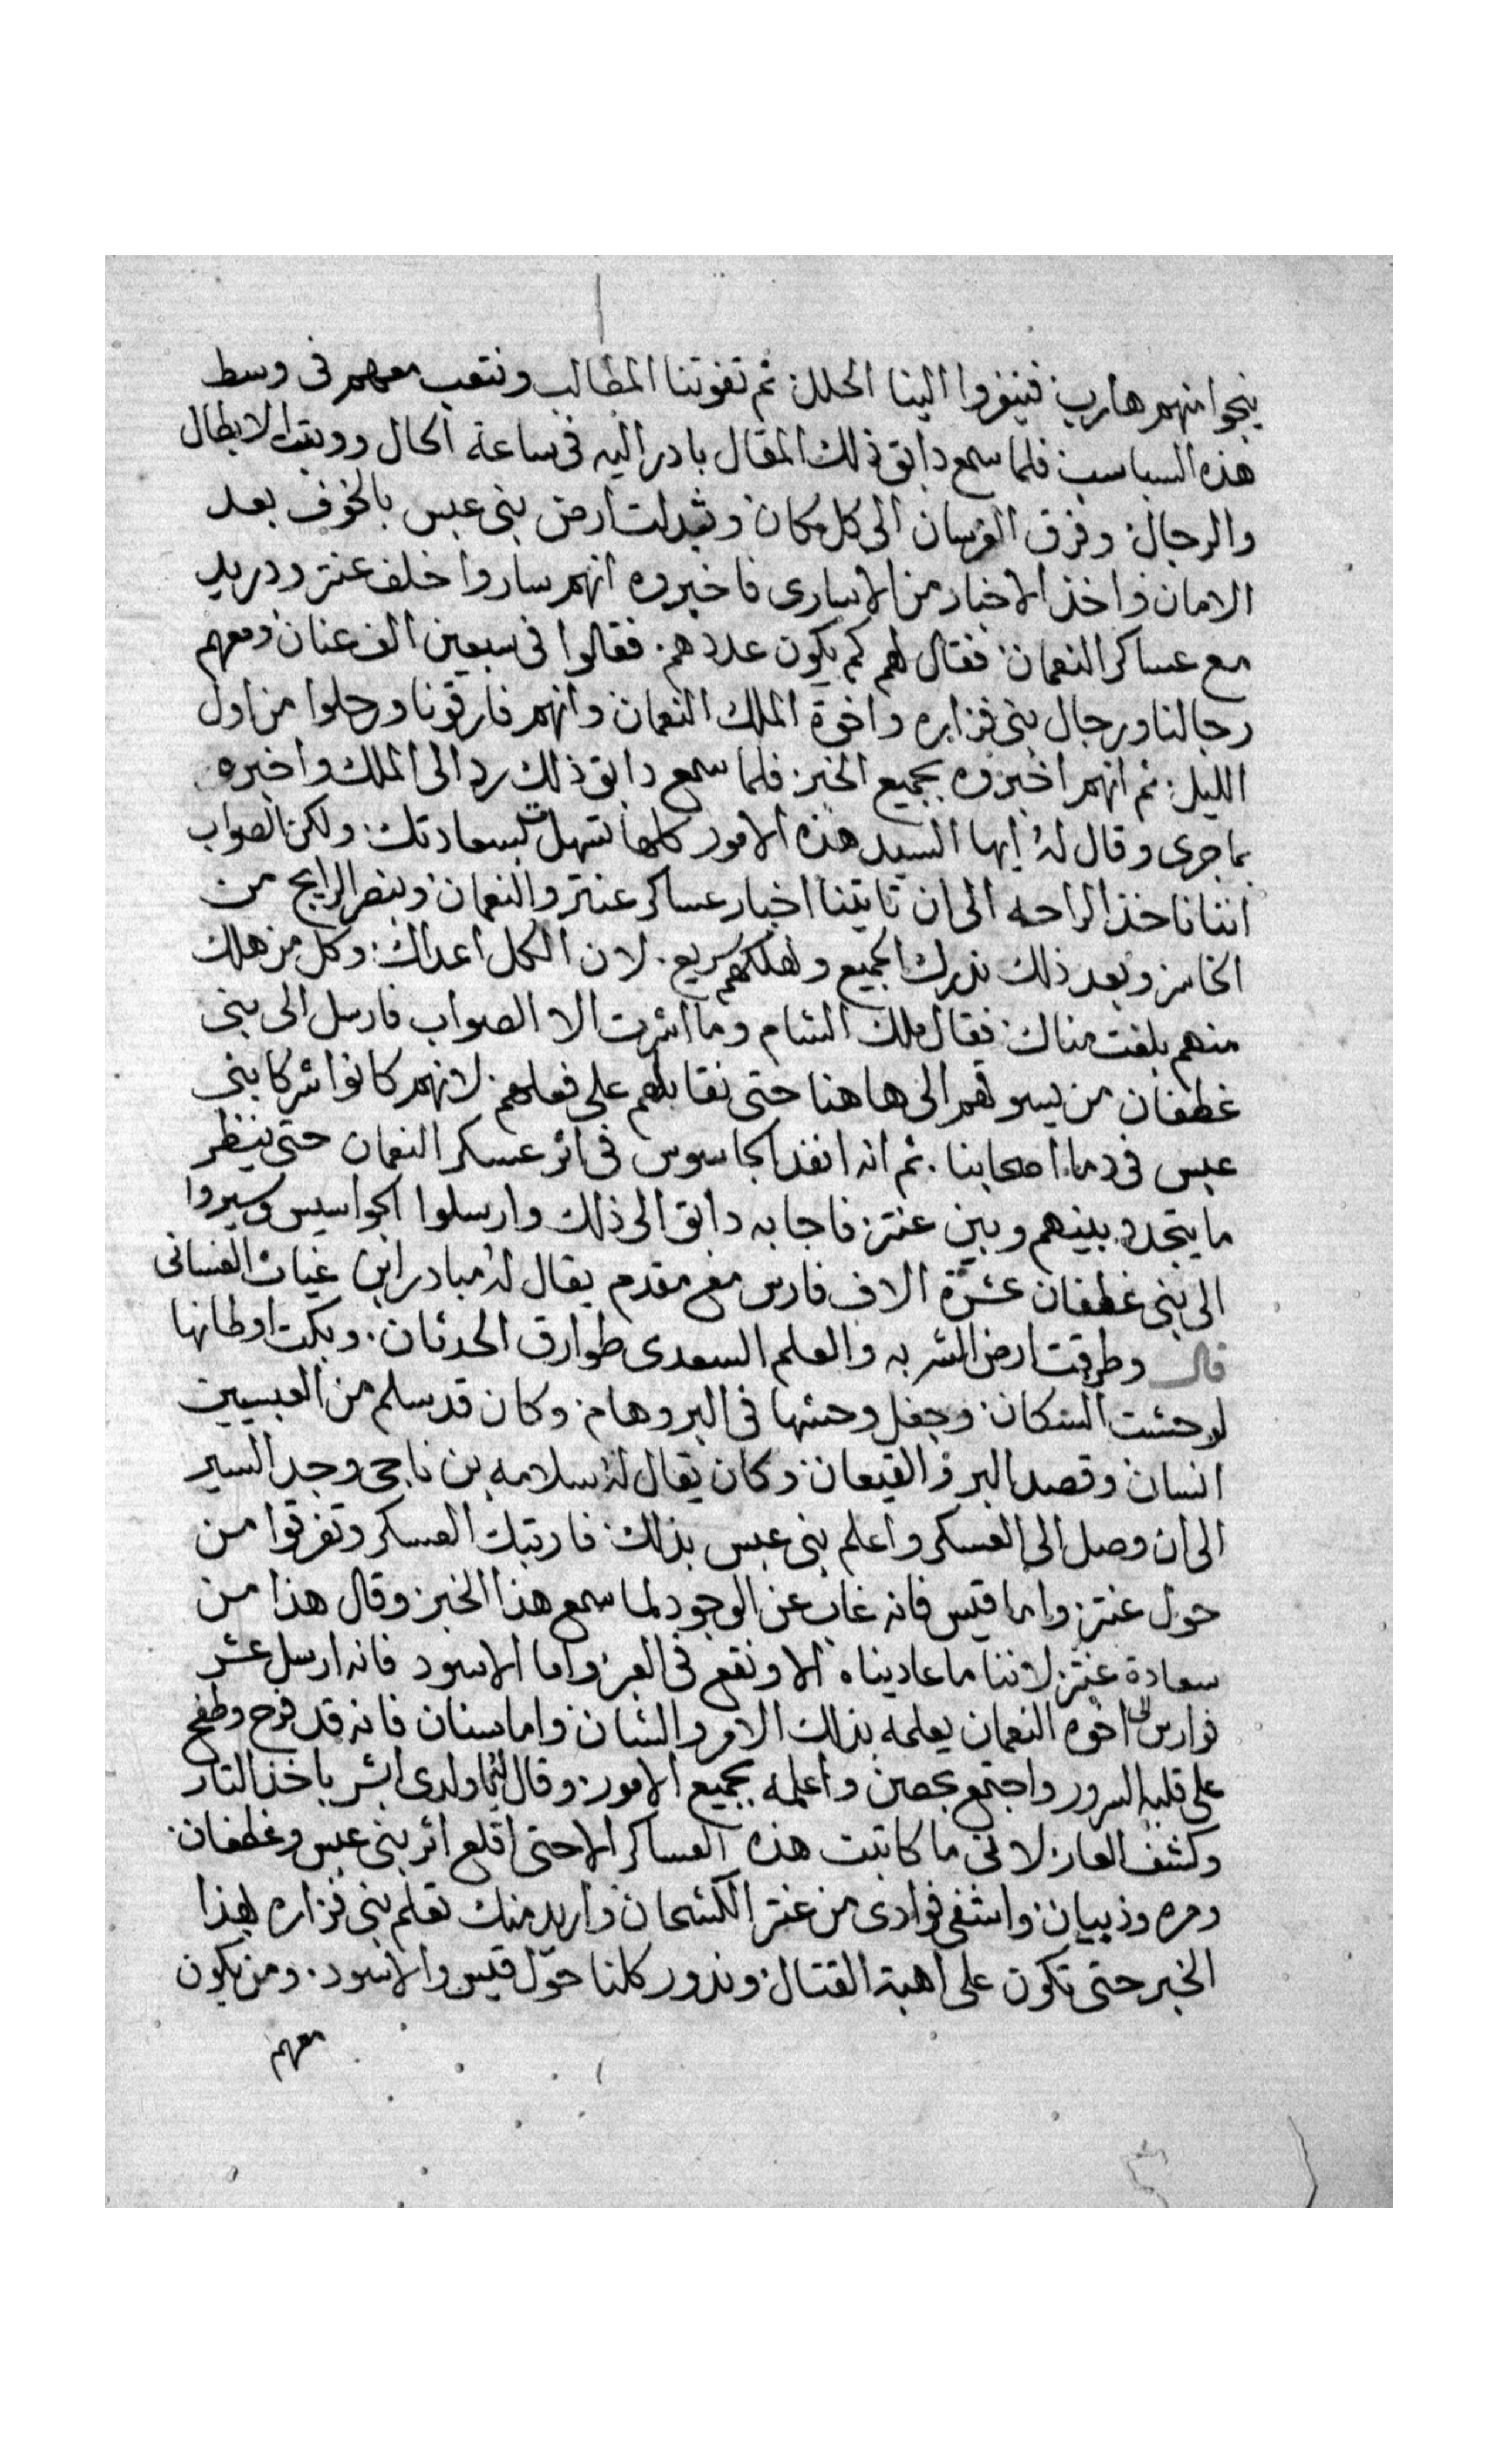 ينجوا منهم هارب فينفروا الينا الحلل ثم تفوتنا المطالب ونتعب معهم فى وسط
هذه السباسب فلما سمع دابق ذلك المقال بادر اليه فى ساعة الحال الابطال
والرجال وفرق الفرسان الى كل مكان وتبدلت ارض بنى عبس بالخوف بعد
الامان واخذ الاخبار من الاسارى فاخبروه انهم ساروا خلف عنتر ودريد
مع عساكر النعمان فقال لهم كم يكون عددهم فقالوا فى سبعين الف عنان ومعهم
رجالنا ورجال بنى فزاره واخوة الملك النعمان وانهم فارقونا ورحلوا من اول
الليل ثم انهم اخبروه بجميع الخبر فلما سمع دابق ذلك رد الى الملك واخبره
بما جرى وقال له ايها السيد هذه الامور كلها تسهلت بسعادتك ولكن الصواب
اننا ناخذ الراحه الى ان تاتينا اخبار عساكر عنتر والنعمان وننضر الرابح من
الخاسر وبعد ذلك ندرك الجميع ونهلكهم سريع لان الكل اعداك وكل من هلك
منهم بلغت مناك فقال ملك الشام وما اشرت الا الصواب فارسل الى بنى
غطفان من يسوقهم الى هاهنا حتى نقابلهم على فعلهم لانهم كانوا شركا بنى
عبس فى دماء اصحابنا ثم انه انفد الجاسوس فى اثر عسكر النعمان حتى ينظر
ما يتجدد بينهم وبين عنتر فاجابه دابق الى ذلك وارسلوا الجواسيس وسيروا
الى بنى غطفان عشرة الاف فارس مع مقدم يقال له مبادر ابن غياث الغسانى
قال وطرقت ارض الشربه والعلم السعدى طوارق الحدثان وبكت اوطانها
لوحشت السكان وجفل وحشها فى البر وهام وكان قد سلم من العبسيين
انسان وقصد البر والقيعان وكان يقال له سلامه بن ناجى وجد السير
الى ان وصل الى العسكر واعلم بنى عبس بذلك فارتبك العسكر وتفرقوا من
حول عنتر واما قيس فانه غاب عن الوجود لما سمع هذا الخبر وقال هذا من
سعادة عنتر لاننا ما عاديناه الا ونقع فى العبر واما الاسود فانه ارسل عشر
فوارس الى اخوه النعمان يعلمه بذلك الامر والشان واما سنان فانه قد فرح وطفح
على قلبه السرور واجتمع بحصن واعلمه بجميع الامور وقال له يا ولدى ابشر باخذ التار
وكشف العار لانى ما كاتبت هذه العساكر الا حتى اقلع اثر بنى عبس وغطفان
ومره وذبيان واشفى فوادى من عنتر الكشحان واريد منك تعلم بنى فزاره بهذا
الخبر حتى تكون على اهبة القتال وندور كلنا حول قيس والاسود ومن يكون
معهم